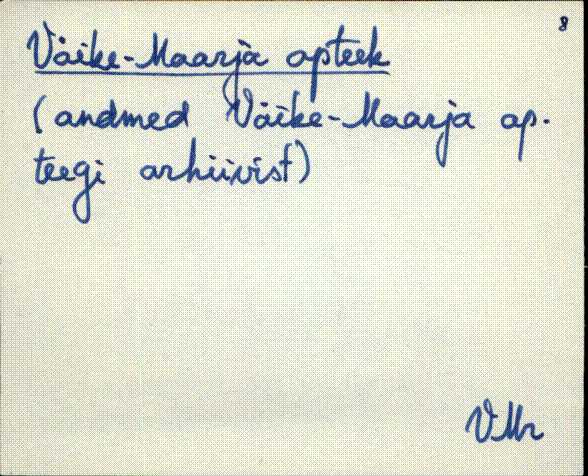 8
Väike-Maarja apteek
(andmed Väike-Maarja ap-
teegi arhiivist)
VMr